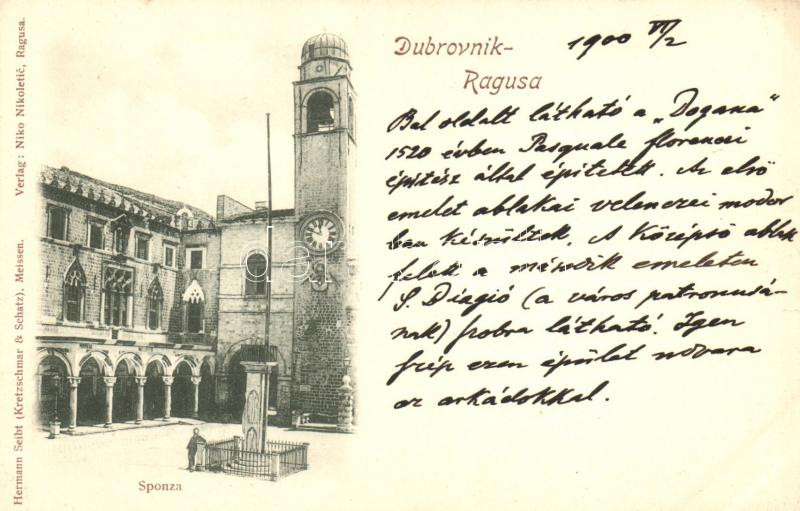 Dubrovnik-
Ragusa
1900 VI/2
Bal oldalt látható a „Dogana"
1520 évben Pasquale florenczi
építész által építetett. Az első
emelet ablakai velenczei modor
ban készültek. A középső ablak
felett a második emeleten
S. Diagió (a város patronusá-
nak) szobra látható. Igen
szép ezen épület udvara
az arkádokkal.
Sponza
Hermann Seibt (Kretzschmar & Schatz), Meissen. Verlag: Niko Nikoletić, Ragusa.
darabanth